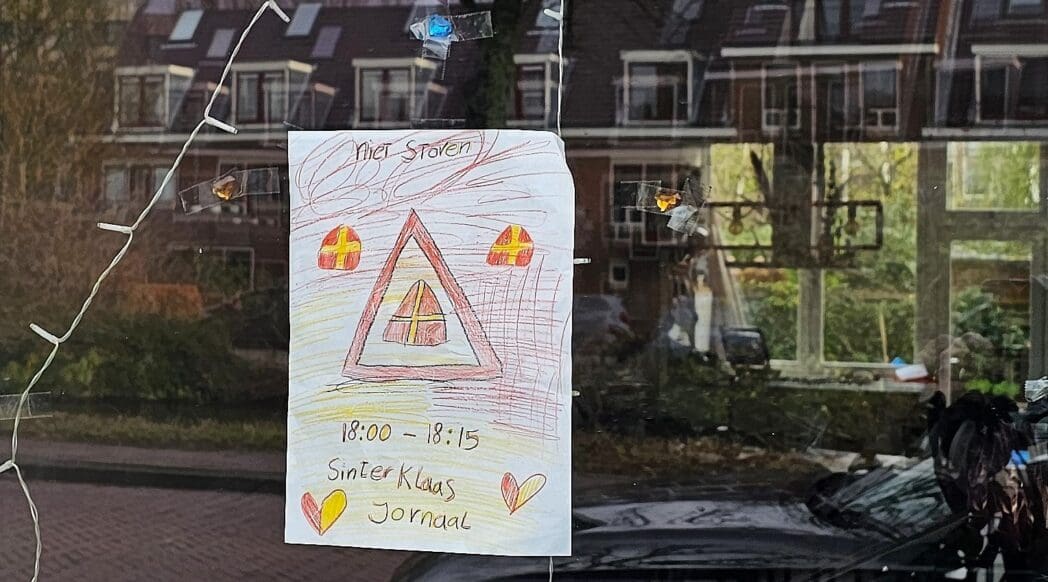 Niet Storen
18:00 - 18:15
Sinterklaas
Jornaal